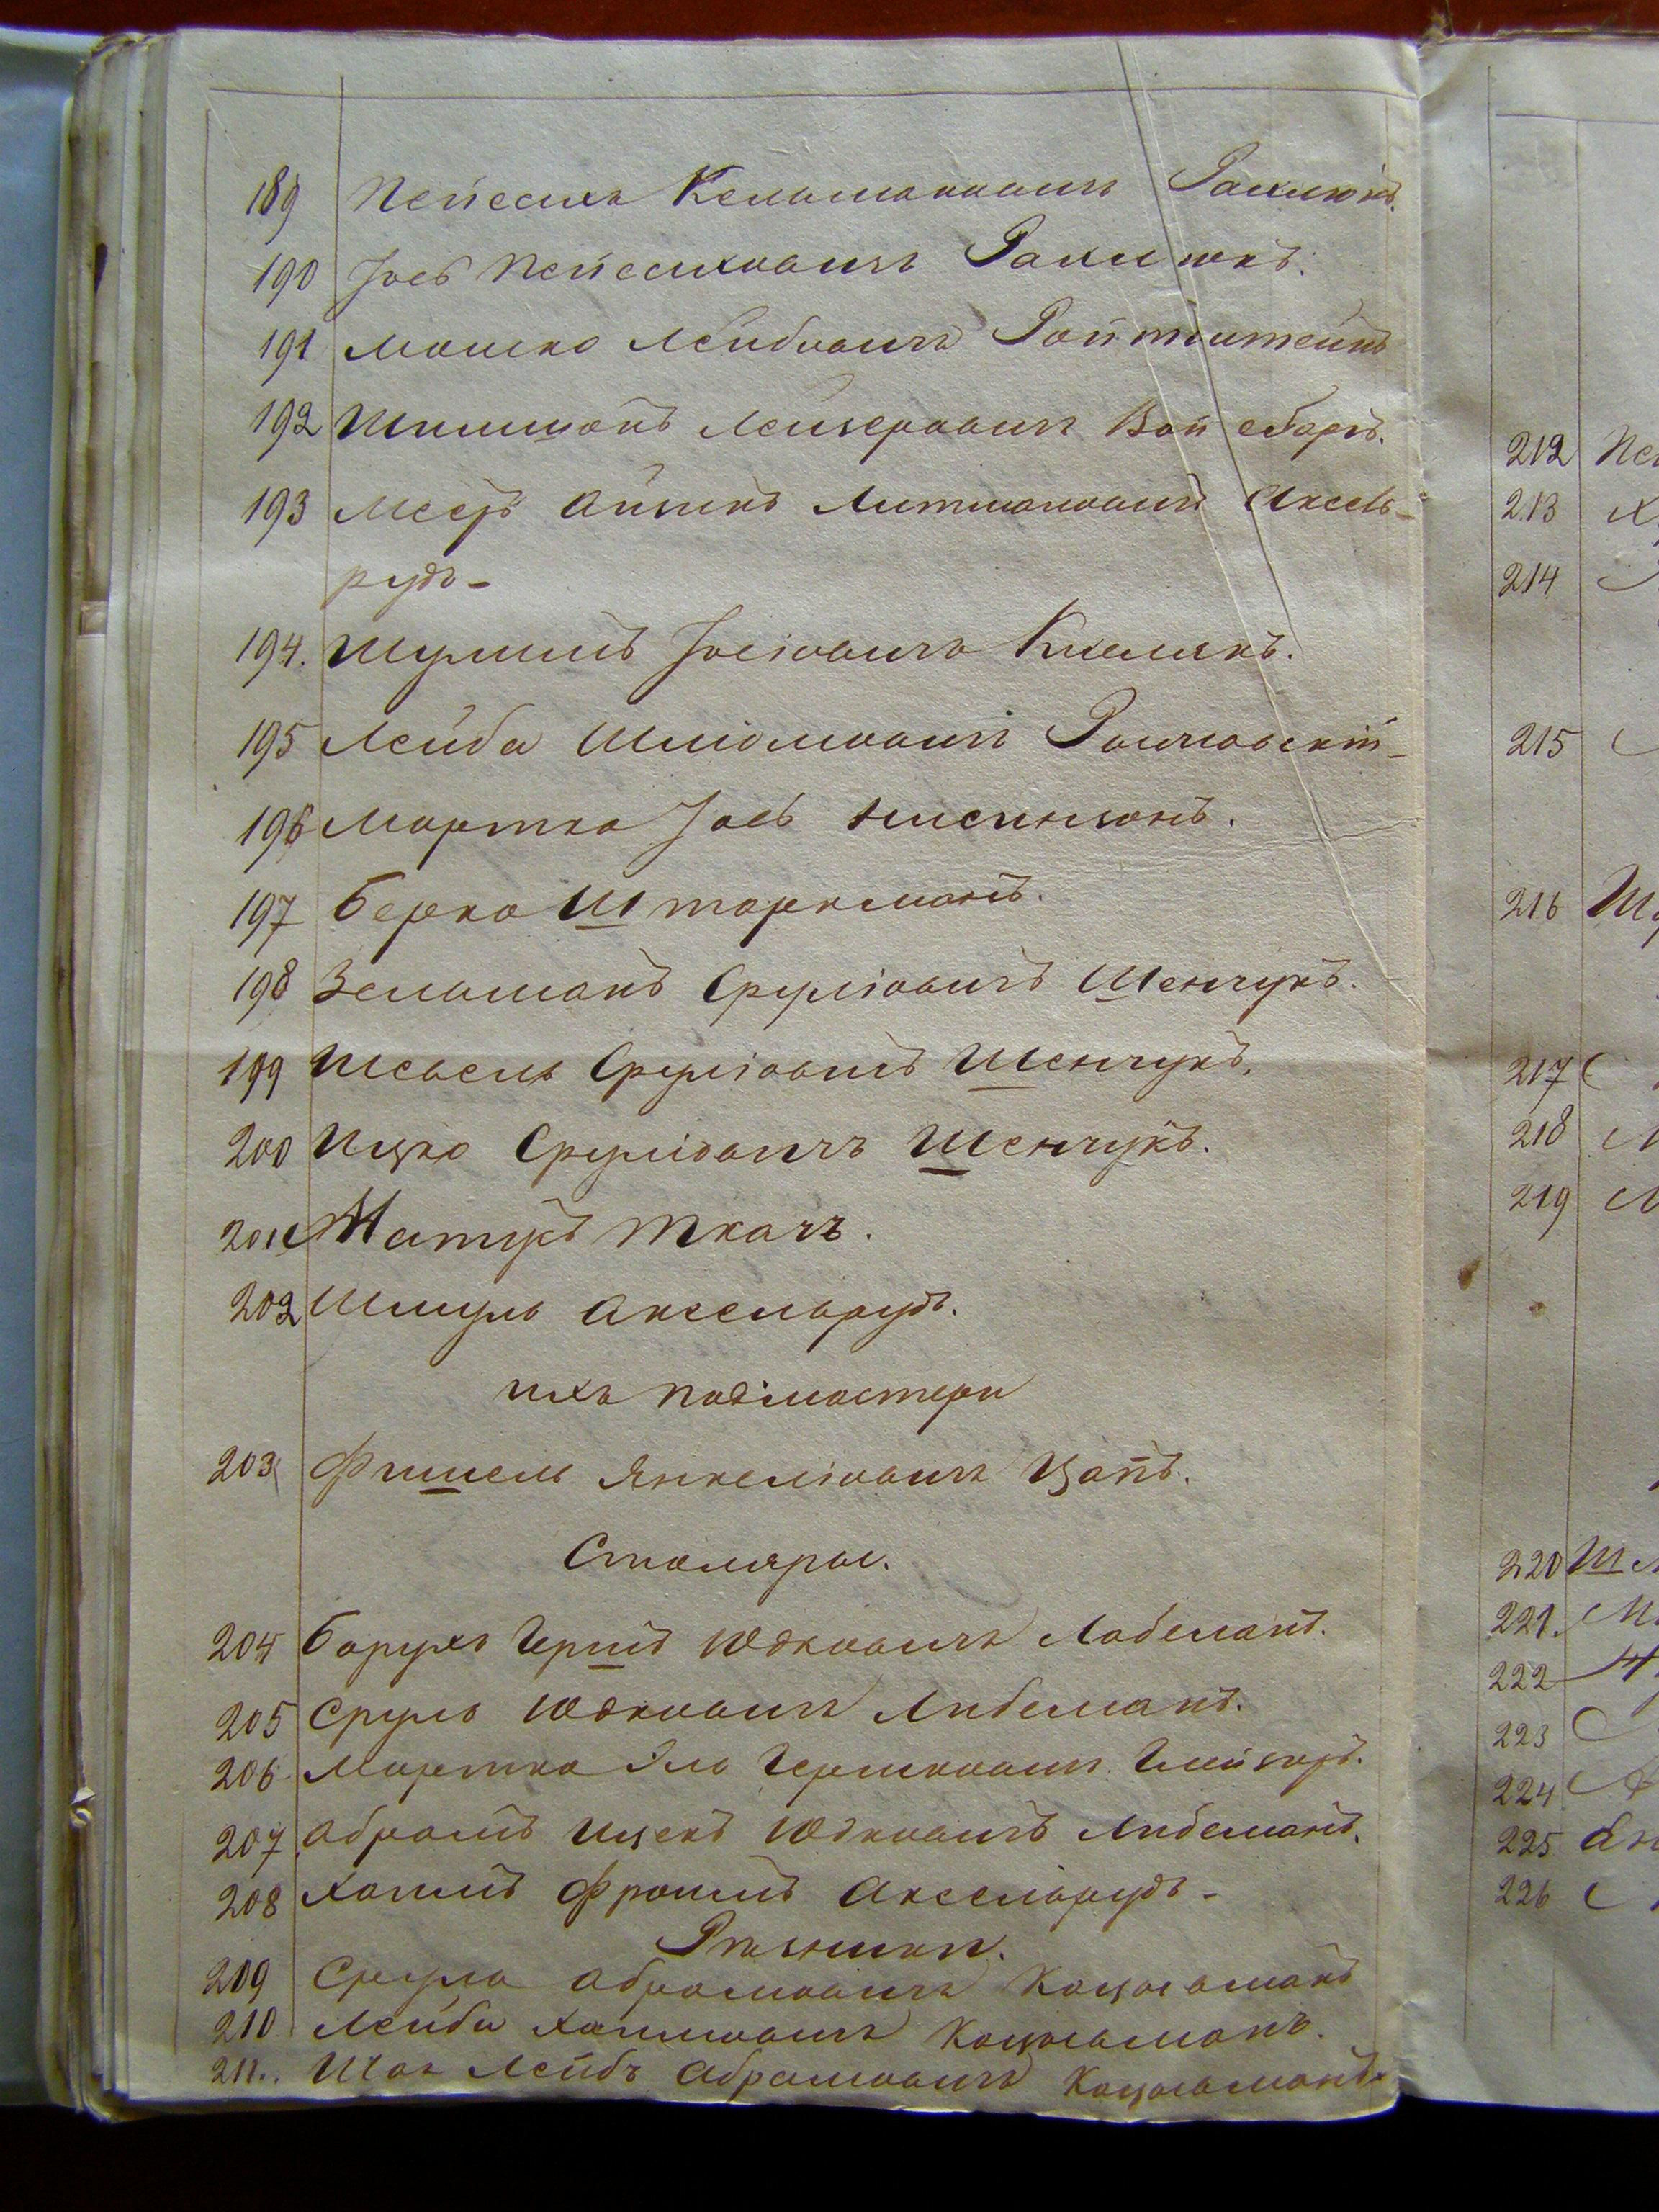 189 Пейсихъ Кельмановичъ Рахлюкъ.
190 Іосъ Пейсиховичъ Рахлюкъ.
191 Мошко Лейбовичъ Ройтштейнъ
192 Шимшонъ Лейзеровичъ Войсбергъ.
193 Мееръ Айзикъ Литмановичъ Аксель-
рудъ-
194. Шулимъ Іосіовичъ
195 Лейба Шліомовичъ
196 Мортко Іось Нисинзонъ.
197 Берко Штаркманъ.
198 Зельманъ Сруліовичъ Шенчукъ.
199 Шевель Сруліовичъ Шенчукъ.
200 Ицко Сруліовичъ Шенчукъ.
201 Матусъ Ткачъ.
202 Шмуль Аксельрудъ.
ихъ подмастери
203 Фишель Янкеліовичъ Цапъ.
Столяры.
204 Борухъ Гершъ Юдковичъ Либеманъ.
205 Сруль Юдковичъ Либеманъ.
206 Мортко Эль Гершковичъ
207 Абрамъ Ицекъ Юдковичъ Либеманъ.
208 Хаимъ Фроимъ Аксельрудъ-
Резники.
209 Сруль Абрамовичъ Кацельманъ
210 Лейба Хаимовичъ Кацельманъ.
211.. Лейбъ Абрамовичъ Кацельманъ
212 Пе
213
214
215
216 Ш
217
218
219
220 Шл
221. М
222
223
224
225 Ян
226